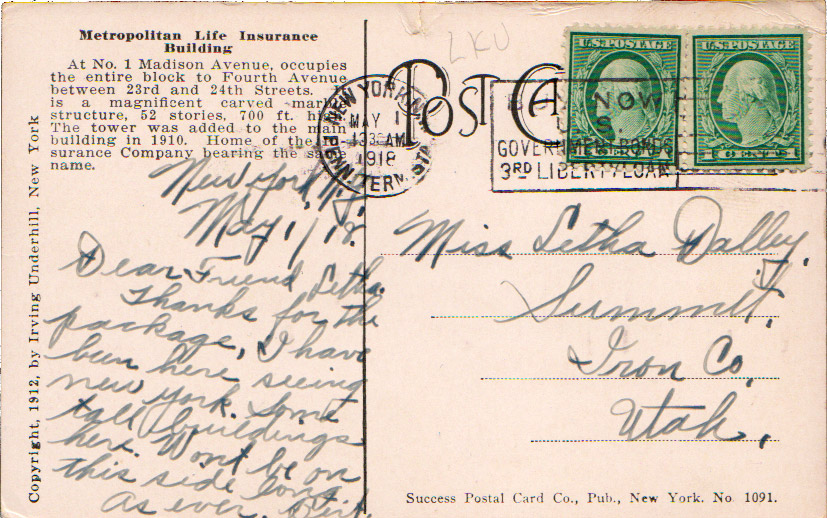 Metropolitan Life Insurance
Building
At No. 1 Madison Avenue, occupies
the entire block to Fourth Avenue
between 23rd and 24th Streets. It
is a magnificent carved marble
structure, 52 stories, 700 ft. high
The tower was added to the main
building in 1910. Home of the
surance Company bearing the same
name.
Copyright, 1912, by Irving Underhill, New York
LKU
POST CA
NEW YORK, N.Y.
MAY 1
AM
1918
PENN. TERM. STA.
NOW
U.S.
GOVERNMENT BONDS
3RD LIBERTY LOAN
U.S. POSTAGE
U.S. POSTAGE
New York N.Y.
May 1/18.
Dear Friend Letha.
Thanks for the
package, I have
been here seeing
new york. Some
tall buildings
here. Wont be on
this side long
As ever,
Miss Letha Dalley,
Summit,
Iron Co,
Utah,
Success Postal Card Co., Pub., New York. No. 1091.